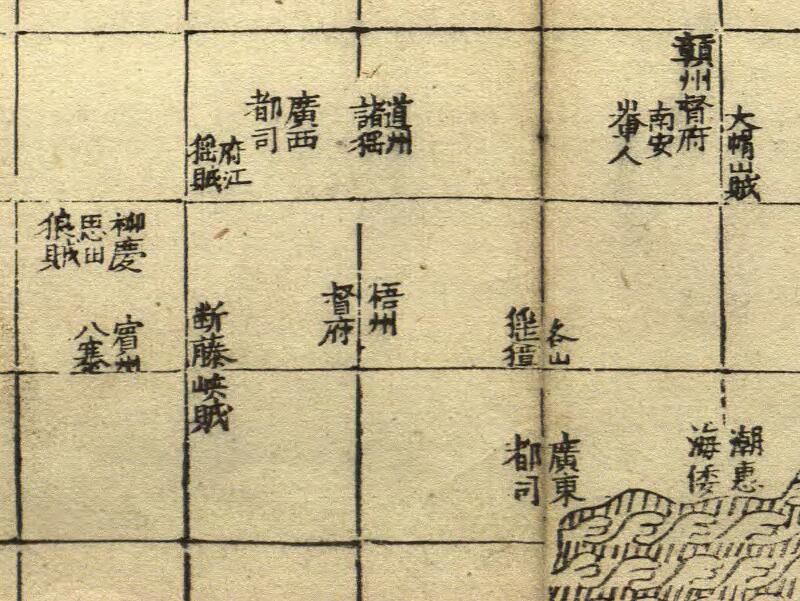 贑州督府
南安
畬人
大㡌山賊
道州
諸猺
廣西
都司
府江
猺賊
柳慶
思田
狼賊
賓州
八寨
断藤峽賊
梧州
督府
各山
猺獞
廣東
都司
潮惠
海倭